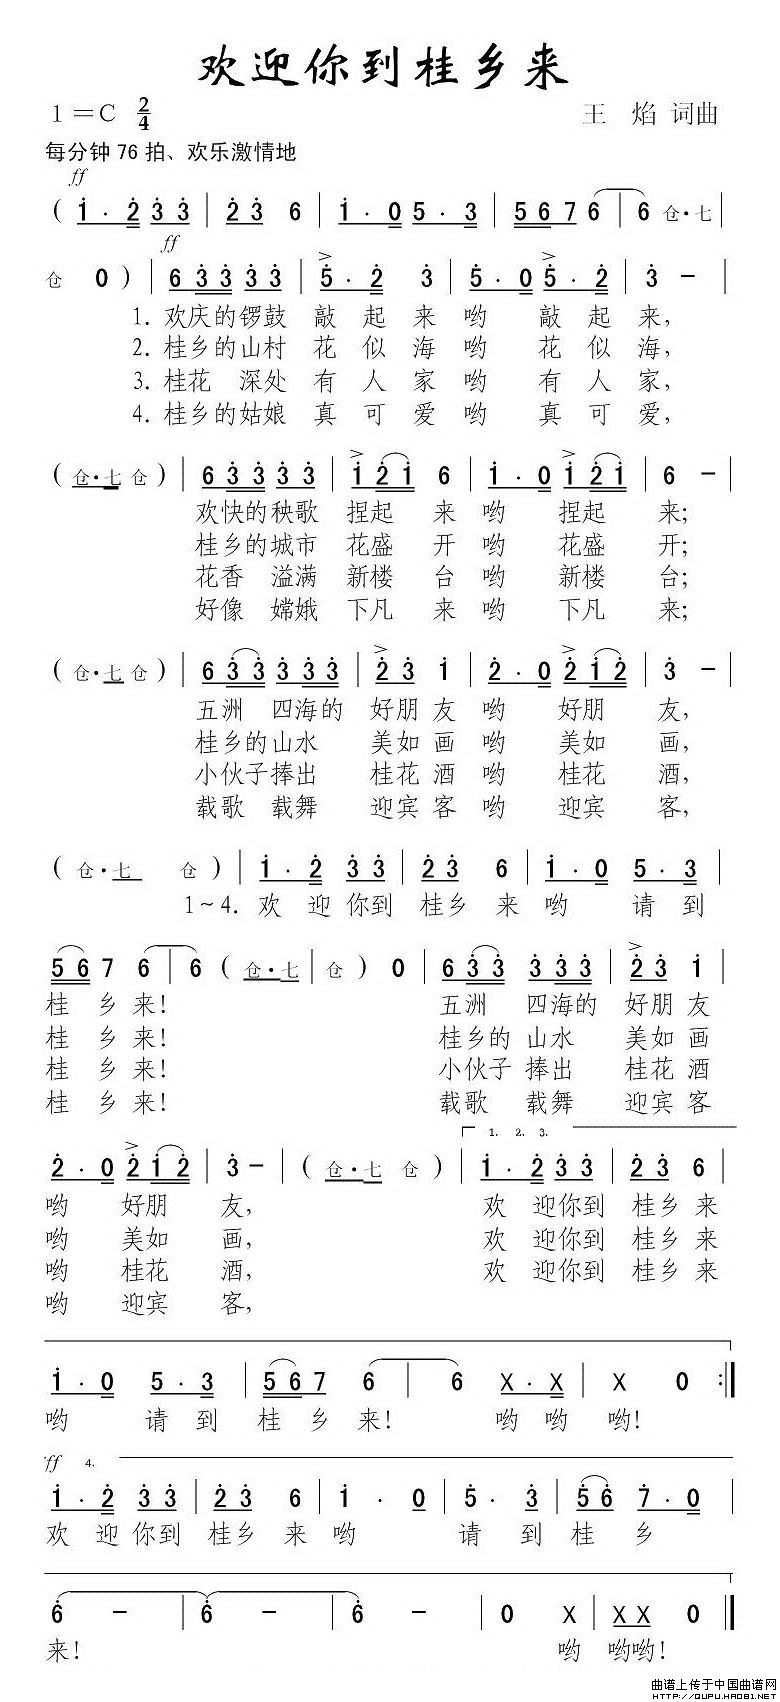 欢迎你到桂乡来
1=C 2/4 王 焰 词曲
每分钟76拍、欢乐激情地
ff
( 1·2 3 3 | 2 3 6 | 1·0 5·3 | 5 6 7 6 | 6 仓·七 |
ff
仓 0 ) | 6 3 3 3 3 | 5·2 3 | 5·0 5·2 | 3 - |
1. 欢庆的锣鼓 敲 起 来 哟 敲 起 来,
2. 桂乡的山村 花 似 海 哟 花 似 海,
3. 桂花 深处 有 人 家 哟 有 人 家,
4. 桂乡的姑娘 真 可 爱 哟 真 可 爱,
( 仓·七 仓 ) | 6 3 3 3 3 | 1 2 1 6 | 1·0 1 2 1 | 6 - |
欢快的秧歌 捏起 来 哟 捏起 来;
桂乡的城市 花盛 开 哟 花盛 开;
花香 溢满 新楼 台 哟 新楼 台;
好像 嫦娥 下凡 来 哟 下凡 来;
( 仓·七 仓 ) | 6 3 3 3 3 3 | 2 3 1 | 2·0 2 1 2 | 3 - |
五洲 四海的 好朋 友 哟 好朋 友,
桂乡的山水 美如 画 哟 美如 画,
小伙子捧出 桂花 酒 哟 桂花 酒,
载歌 载舞 迎宾 客 哟 迎宾 客,
( 仓·七 仓 ) | 1·2 3 3 | 2 3 6 | 1·0 5·3 |
1～4. 欢 迎 你到 桂乡 来 哟 请 到
5 6 7 6 | 6 ( 仓·七 | 仓 ) 0 | 6 3 3 3 3 3 | 2 3 1 |
桂 乡 来! 五洲 四海的 好朋 友
桂 乡 来! 桂乡的 山水 美如 画
桂 乡 来! 小伙子 捧出 桂花 酒
桂 乡 来! 载歌 载舞 迎宾 客
1. 2. 3.
2·0 2 1 2 | 3 - | ( 仓·七 仓 ) | 1·2 3 3 | 2 3 6 |
哟 好朋 友, 欢 迎你到 桂乡 来
哟 美如 画, 欢 迎你到 桂乡 来
哟 桂花 酒, 欢 迎你到 桂乡 来
哟 迎宾 客,
1·0 5·3 | 5 6 7 6 | 6 X·X | X 0 :|
哟 请 到 桂 乡 来! 哟 哟 哟!
ff 4.
1·2 3 3 | 2 3 6 | 1·0 | 5·3 | 5 6 7·0 |
欢 迎 你到 桂乡 来 哟 请 到 桂 乡
6 - | 6 - | 6 - | 0 X | X X 0 |
来! 哟 哟哟!
曲谱上传于中国曲谱网
HTTP://QUPU.HAO81.NET